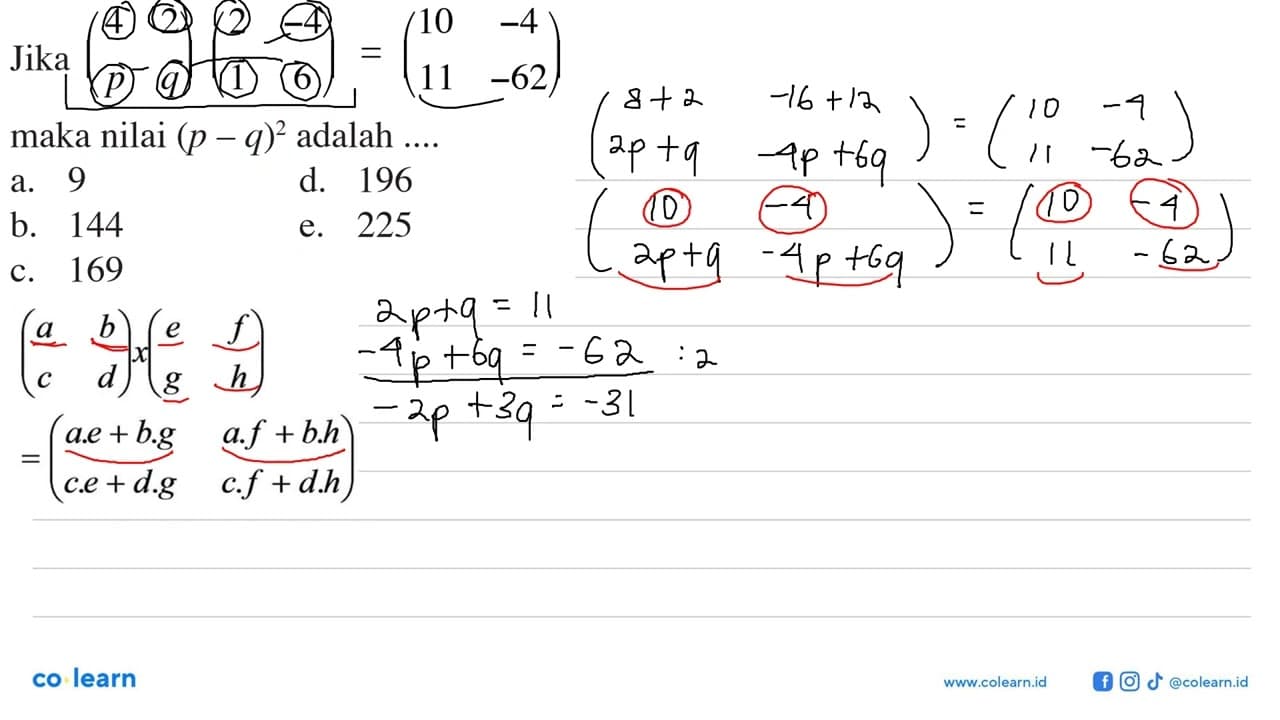 Jika (4 2 p q) (2 -4 1 6) = (10 -4 11 -62)
maka nilai (p – q)² adalah ....
a. 9 d. 196
b. 144 e. 225
c. 169
(8+2 -16+12 2p+q -4p+6q) = (10 -4 11 -62)
(10 -4 2p+q -4p+6q) = (10 -4 11 -62)
(a b c d) x (e f g h)
= (a.e + b.g a.f + b.h c.e + d.g c.f + d.h)
2p+q = 11
-4p+6q = -62 :2
-2p+3q = -31
co learn
www.colearn.id @colearn.id